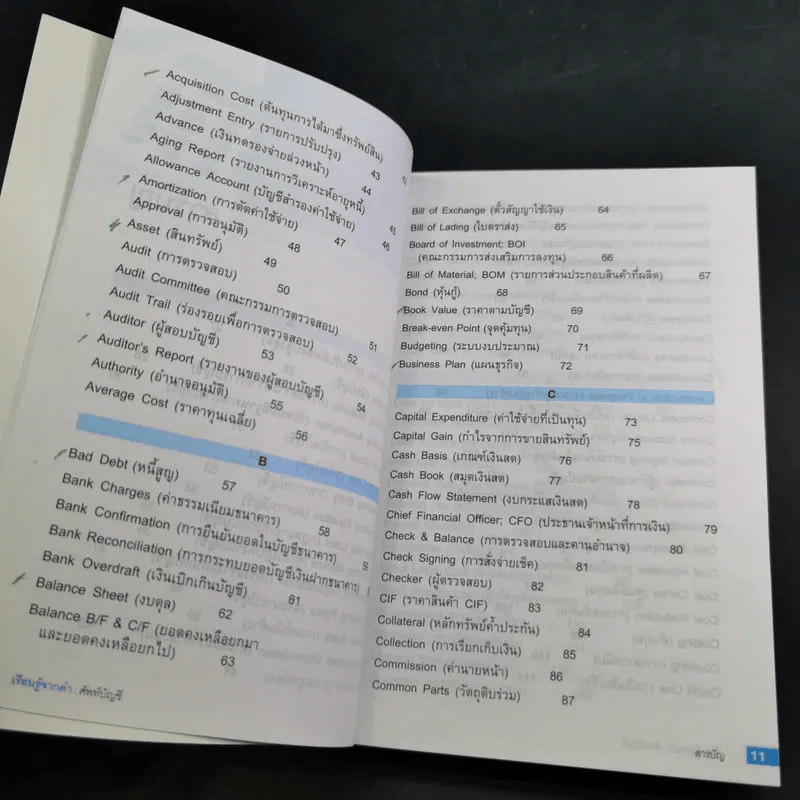 Acquisition Cost (ต้นทุนการได้มาซึ่งทรัพย์สิน)
Adjustment Entry (รายการปรับปรุง) 43
Advance (เงินทดรองจ่ายล่วงหน้า) 44
Aging Report (รายงานการวิเคราะห์อายุหนี้) 45
Allowance Account (บัญชีสำรองค่าใช้จ่าย) 46
Amortization (การตัดค่าใช้จ่าย) 47
Approval (การอนุมัติ) 48
Asset (สินทรัพย์) 49
Audit (การตรวจสอบ) 50
Audit Committee (คณะกรรมการตรวจสอบ) 51
Audit Trail (ร่องรอยเพื่อการตรวจสอบ) 52
Auditor (ผู้สอบบัญชี) 53
Auditor's Report (รายงานของผู้สอบบัญชี) 54
Authority (อำนาจอนุมัติ) 55
Average Cost (ราคาทุนเฉลี่ย) 56
B
Bad Debt (หนี้สูญ) 57
Bank Charges (ค่าธรรมเนียมธนาคาร) 58
Bank Confirmation (การยืนยันยอดในบัญชีธนาคาร)
Bank Reconciliation (การกระทบยอดบัญชีเงินฝากธนาคาร)
Bank Overdraft (เงินเบิกเกินบัญชี) 61
Balance Sheet (งบดุล) 62
Balance B/F & C/F (ยอดคงเหลือยกมา
และยอดคงเหลือยกไป) 63
เรียนรู้จากคำ : ศัพท์บัญชี
Bill of Exchange (ตั๋วสัญญาใช้เงิน) 64
Bill of Lading (ใบตราส่ง) 65
Board of Investment; BOI
(คณะกรรมการส่งเสริมการลงทุน) 66
Bill of Material; BOM (รายการส่วนประกอบสินค้าที่ผลิต) 67
Bond (หุ้นกู้) 68
Book Value (ราคาตามบัญชี) 69
Break-even Point (จุดคุ้มทุน) 70
Budgeting (ระบบงบประมาณ) 71
Business Plan (แผนธุรกิจ) 72
C
Capital Expenditure (ค่าใช้จ่ายที่เป็นทุน) 73
Capital Gain (กำไรจากการขายสินทรัพย์) 75
Cash Basis (เกณฑ์เงินสด) 76
Cash Book (สมุดเงินสด) 77
Cash Flow Statement (งบกระแสเงินสด) 78
Chief Financial Officer; CFO (ประธานเจ้าหน้าที่การเงิน) 79
Check & Balance (การตรวจสอบและคานอำนาจ) 80
Check Signing (การสั่งจ่ายเช็ค) 81
Checker (ผู้ตรวจสอบ) 82
CIF (ราคาสินค้า CIF) 83
Collateral (หลักทรัพย์ค้ำประกัน) 84
Collection (การเรียกเก็บเงิน) 85
Commission (ค่านายหน้า) 86
Common Parts (วัตถุดิบร่วม) 87
สารบัญ 11